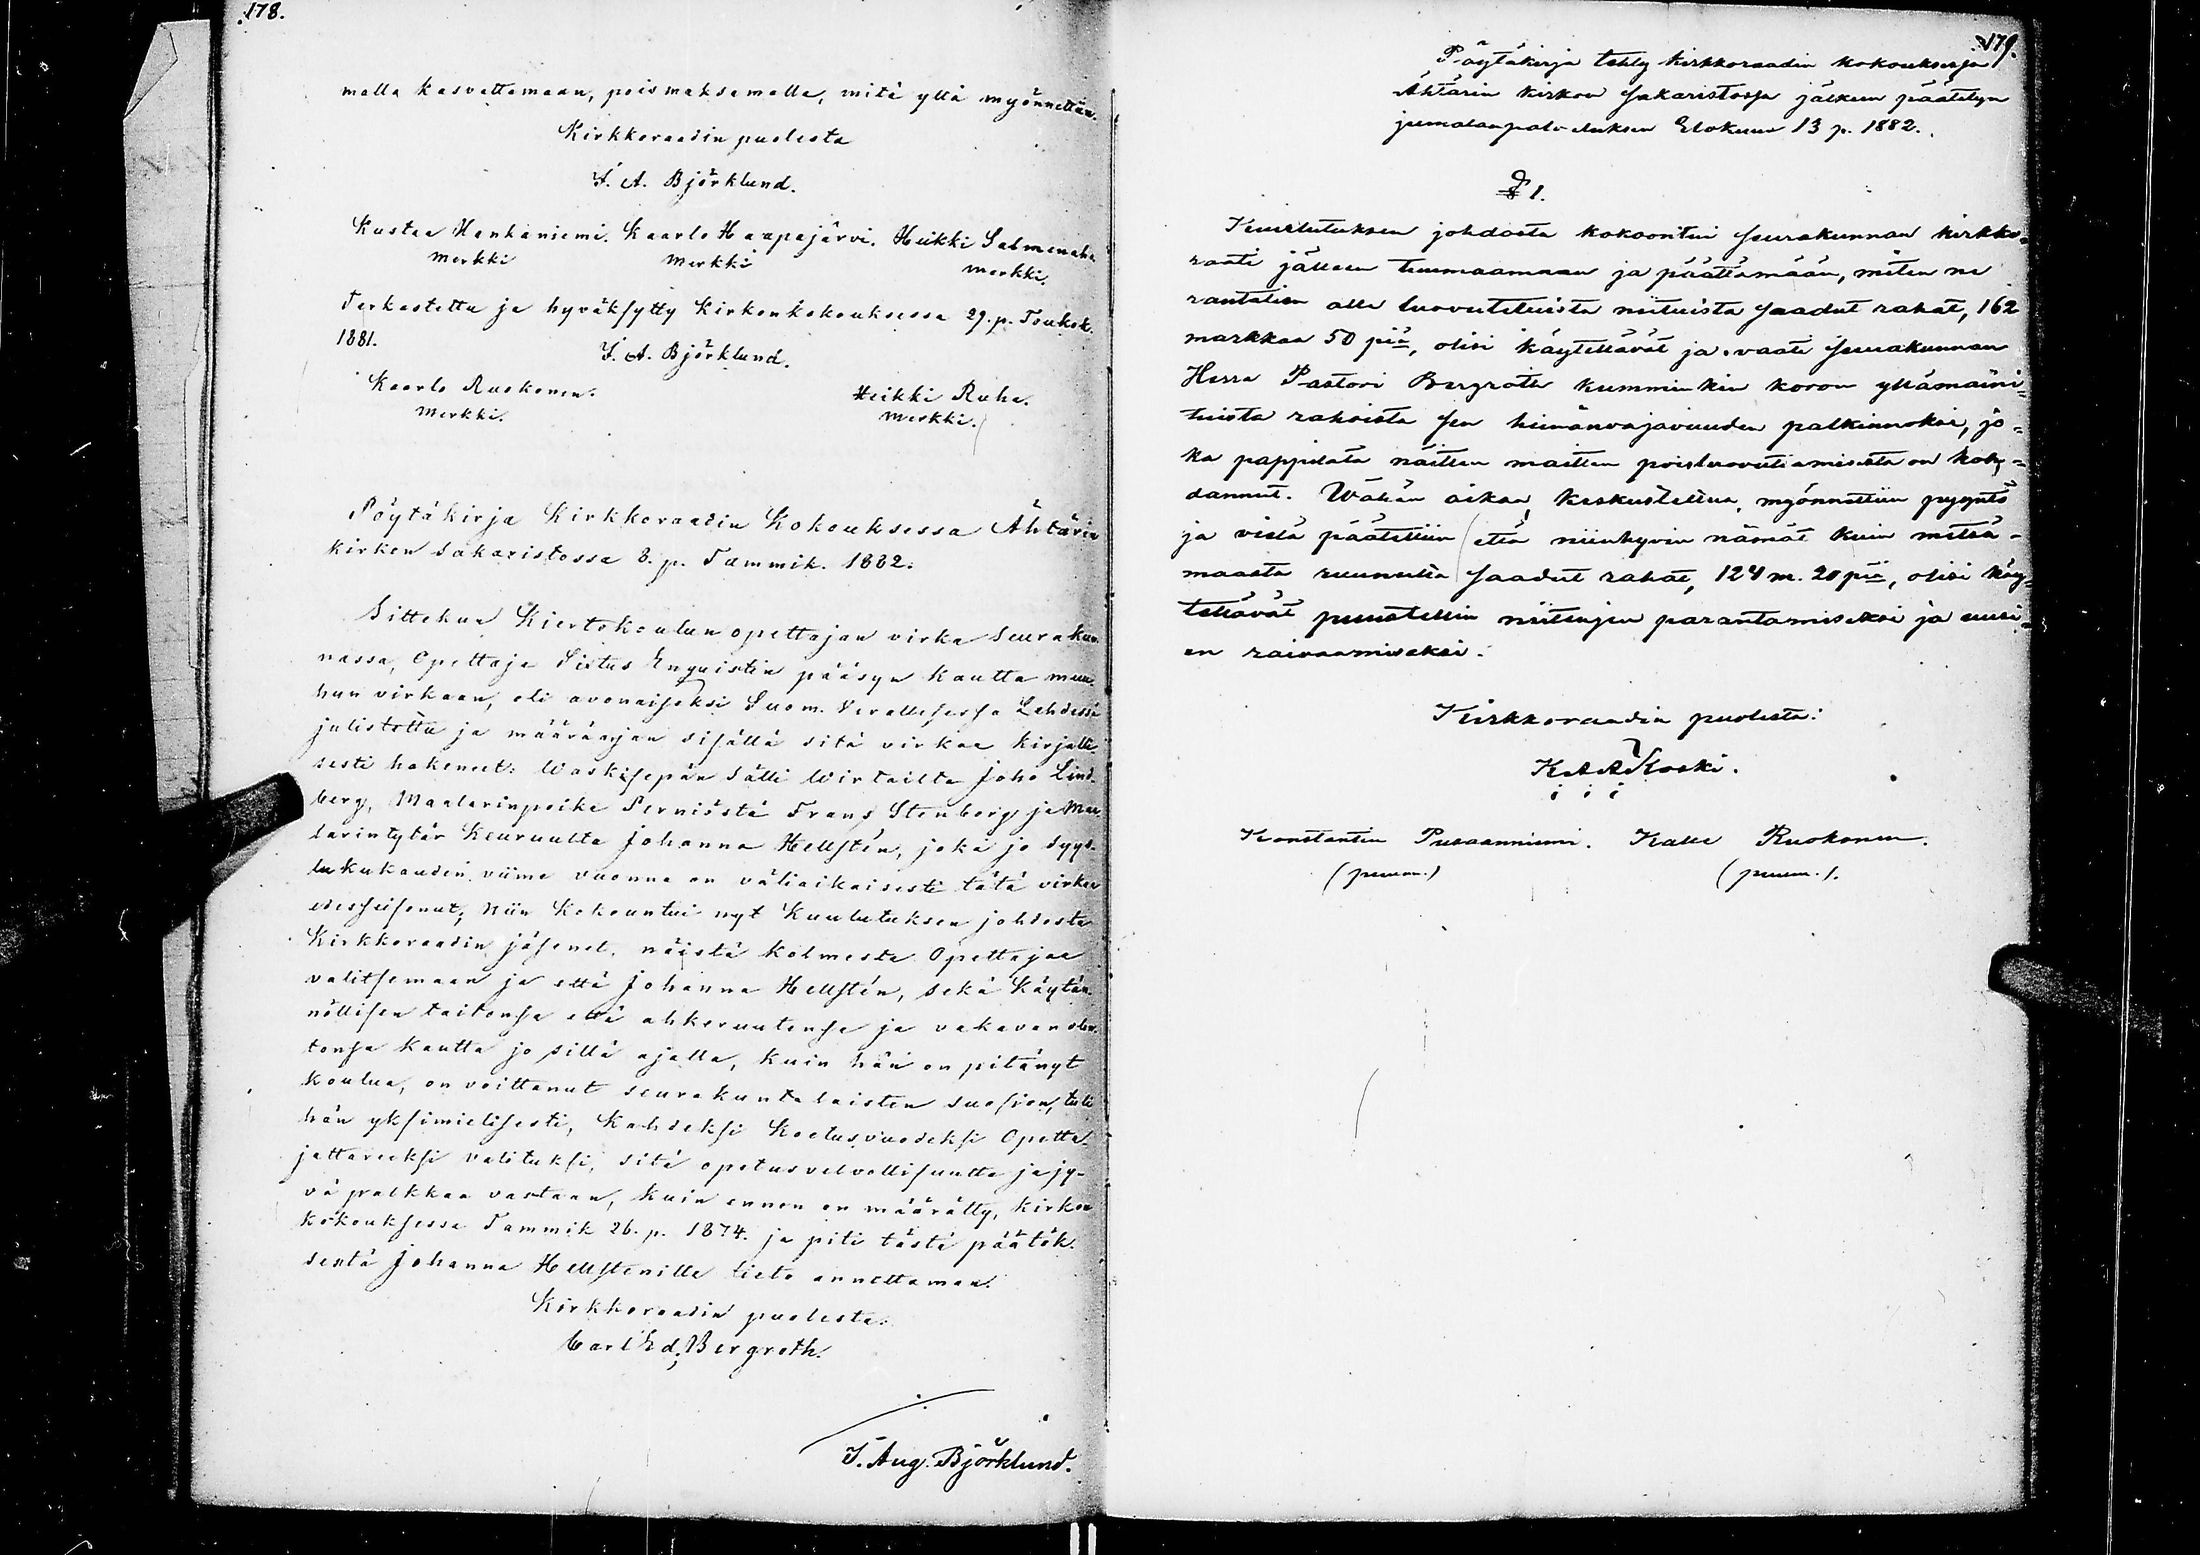 178.
malla kasvattamaan, pois maksamalla, mitä yllä myönnettiin.
Kirkkoraadin puolesta
I. A. Björklund.
Kustaa Hankaniemi. Kaarlo Haapajärvi. Heikki Salmenaho
merkki merkki merkki.
Terkastettu ja hyväksytty Kirkonkokouksessa 29. p. Toukok.
1881.
I. A. Björklund.
Kaarlo Ruokonen. Heikki Ruha.
merkki. merkki.
Pöytäkirja Kirkkoraadin Kokouksessa Ähtärin
kirkon Sakaristossa 8. p. Tammik. 1882.
Sittekun Kiertokoulun opettajan virka Seurakun-
nassa, Opettaja Sixtus Enqvistin pääsyn kautta muu-
hun virkaan, oli avonaiseksi Suom. Virallisessa Lehdessä
julistettu ja määräajan sisällä sitä virkaa kirjalli-
sesti hakeneet: Waskisepän Sälli Wirtailta Joho Lind-
berg, Maalarinpoika Perniöstä Frans Stenberg ja Maa-
larintytär Keuruulta Johanna Hellstén, joka jo Syys-
lukukauden viime vuonna on väliaikaisesti tätä virkaa
edesseisonut; Niin kokountui nyt Kuulutuksen johdosta
Kirkkoraadin jäsenet, näistä kolmesta Opettajaa
valitsemaan ja että Johanna Hellstén, sekä käytän-
nöllisen taitonsa että ahkeruutensa ja vakavan olen-
tonsa kautta jo sillä ajalla, kuin hän on pitänyt
koulua, on voittanut seurakuntalaisten suosion, tuli
hän yksimielisesti, Kahdeksi Koetusvuodeksi Opetta-
jattareeksi valituksi, sitä opetusvelvollisuutta ja jy-
vä palkkaa vastaan, kuin ennen on määrätty, kirkon
kokouksessa Tammik 26. p. 1874. ja piti tästä päätök-
sestä Johanna Hellstenille tieto annettaman.
Kirkkoraadin puolesta:
Carl Ed. Bergroth.
I. Aug. Björklund.
179.
Pöytäkirja tehty kirkkoraadin kokouksessa
Ähtärin kirkon Sakaristossa jälkeen päätetyn
jumalanpalveluksen Elokuun 13 p. 1882.
§ 1.
Kuulutuksen johdosta kokoontui seurakunnan kirkko-
raati jälleen tuumaamaan ja päättämään, miten ne
rautatien alle luovutetuista niituista saadut rahat, 162
markkaa 50 piä, olisi käytettävät ja vaati seurakunnan
Herra Pastori Bergroth kumminkin koron yllämaini-
tuista rahoista sen heinänvajavuuden palkinnoksi, jo-
ka pappilata näitten maitten poisluovuttamisesta on koh-
dannut. Wähän aikaa keskusteltua, myönnettiin pyyntö
ja vielä päätettiin että niinhyvin nämät kuin metsä-
maasta ruunulta saadut rahat, 124 m. 20 piä, olisi käy-
tettävät puustellin niittujen parantamiseksi ja uusi-
en raivaamiseksi.
Kirkkoraadin puolesta:
K A A Koski.
Konstantin Pusaanniemi. Kalle Ruokonen.
(puum.) (puum.).